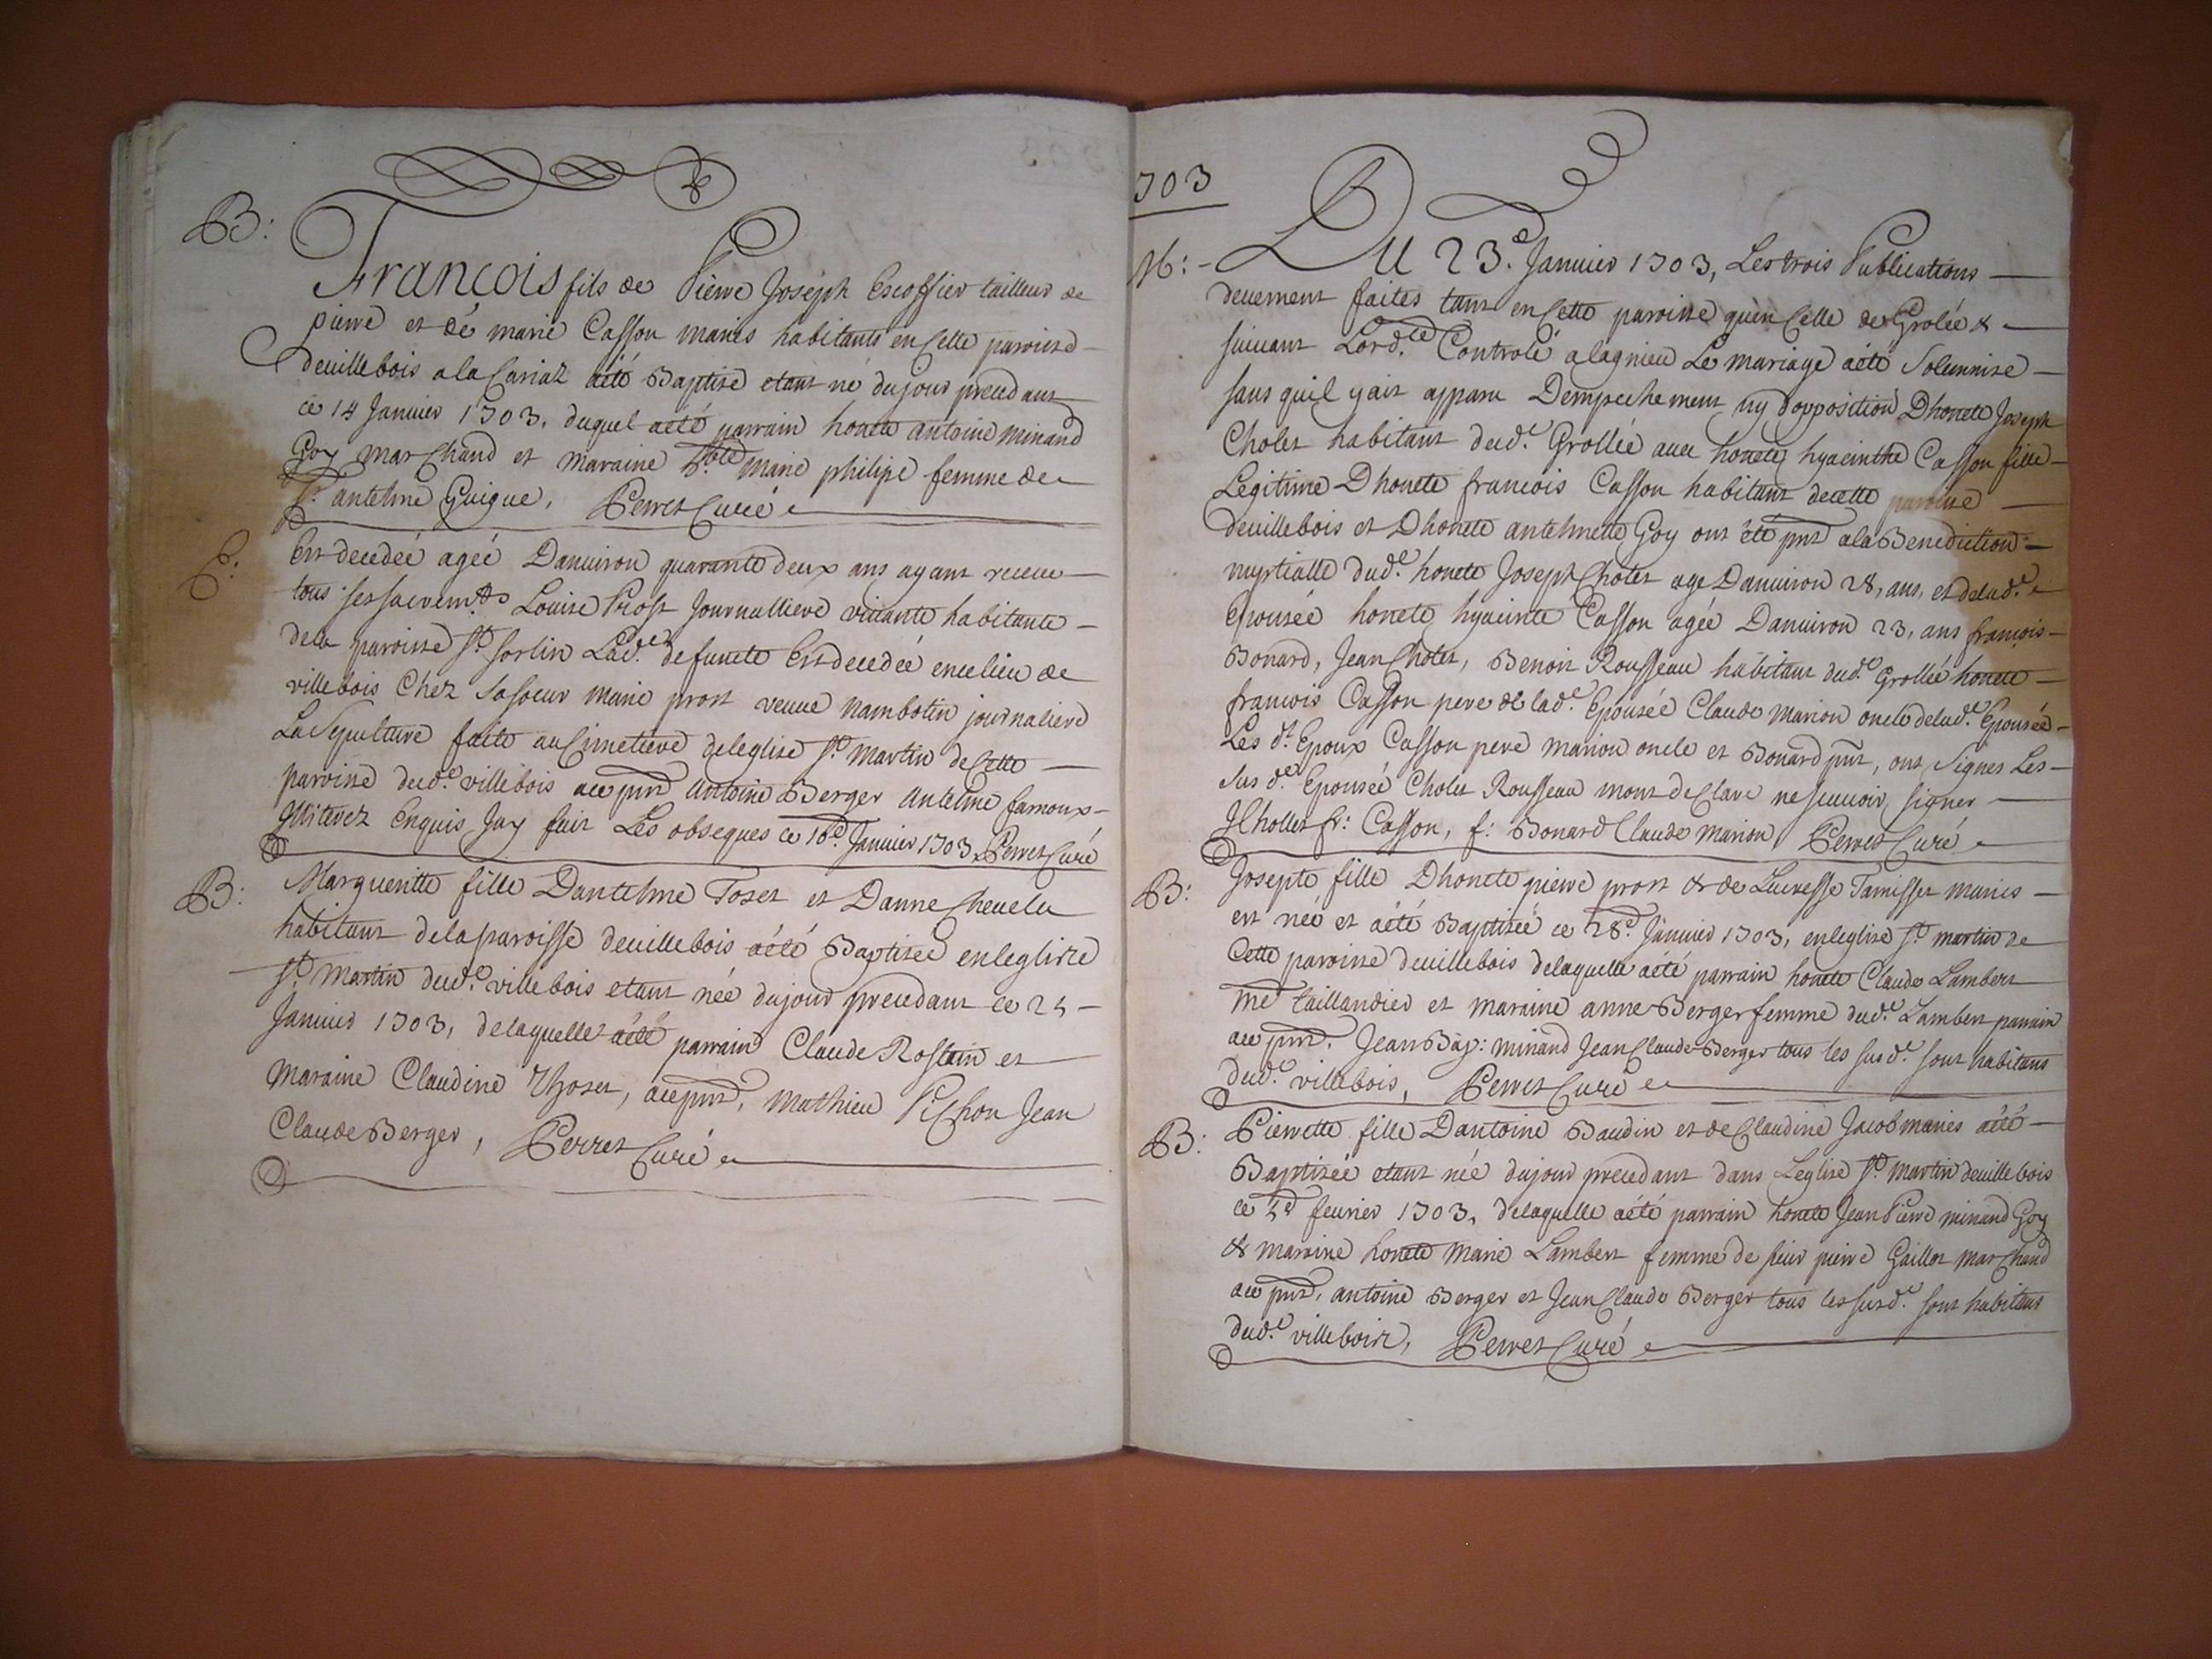 B:
François fils de Pierre Joseph Escoffier tailleur de
pierre et dé marie Casson mariés habitants en Cette paroisse
deuillebois a la Cariaz aété Baptisé etant né dujour precedant
ce 14 Januier 1703, duquel aété parrain honete antoine minand
Goy marchand et maraine h.ble marie philipe femme de
Sr. antelme Guigue, Perret Curé
S:
Est decedeé ageé Danuiron quarante deux ans ayant receu
tous ses sacrem.ts Louise Prost Journalliere viuante habitante
dela paroisse St. Sorlin Lad.e defuncte Est decedeé encelieu de
villebois Chez Sasoeur marie prost veuue nambotin journaliere
La Sepulture faite au Cimetiere deleglise St. Martin de Cette
paroisse dud.t villebois aux pnts Antoine Berger Antelme famoux
Miterez Enquis Jay fait Les obseques ce 16e. Januier 1703, Perret Curé
B:
Margueritte fille Dantelme Toset et Danne Cheuelu
habitant delaparoisse deuillebois aété Baptisée enleglise
St. Martin dud.t villebois etant née dujour precedant ce 25
Januier 1703, delaquelle aété parrain Claude Rostain et
Maraine Claudine Thoset, aux pnts, Mathieu Pichon Jean
Claude Berger, Perret Curé
703
M:
Du 23e. Januier 1703, Les trois Publications
deuement faites tant en Cette paroisse quèn Celle de Grolée &
suiuant Lord.ce Controlé alagnieu Le mariage aété Solemnise
sans quil yait apparu Dempechement ny dopposition Dhonete Joseph
Cholet habitant dud.t Grollée auec honete hyacinthe Casson fille
Legitime Dhonete francois Casson habitant decette paroisse
deuillebois et Dhonete antelmette Goy ont été pnts ala Benediction
nuptialle dud.t honete Joseph Cholet age Danuiron 28, ans, et delad.e
epouseé honete hyacinte Casson ageé Danuiron 23, ans françois
Bonard, Jean Cholet, Benoit Rousseau habitant dud.t Grolleé honete
francois Casson pere de lad.e Epouseé Claude Marion oncle delad.e Epouseé
Les d.t Epoux Casson pere Marion oncle et Bonard pnt, ont Signes Les
Sus d.es Epouseé Cholet Rousseau mont declaré ne scauoir signer
J Chollet fr: Casson, f: Bonard Claude Marion, Perret Curé
B:
Josepte fille Dhonete pierre prost & de Lucresse Tamisset mariés
est neé et aété Baptiseé ce 28e. Januier 1703, enleglise St. martin de
Cette paroisse deuillebois delaquelle aété parrain honete Claude Lambert
me taillandier et maraine anne Berger femme dud.t Lambert parrain
aux pnts, Jean Bap: minand Jean Claude Berger tous les sus d.ts sont habitans
dud.t villebois, Perret Curé
B:
Pierrette fille Dantoine Baudin et de Claudine Jacob mariés aété
Baptiseé etant née dujour precedant dans Leglise St. Martin deuillebois
ce 5e feurier 1703, delaquelle aété parrain honete Jean Pierre minand Goy
& maraine honete Marie Lambert femme de sieur pierre Gaillot marchand
aux pnts, antoine Berger et Jean Claude Berger tous les susd.ts sont habitans
dud.t villebois, Perret Curé